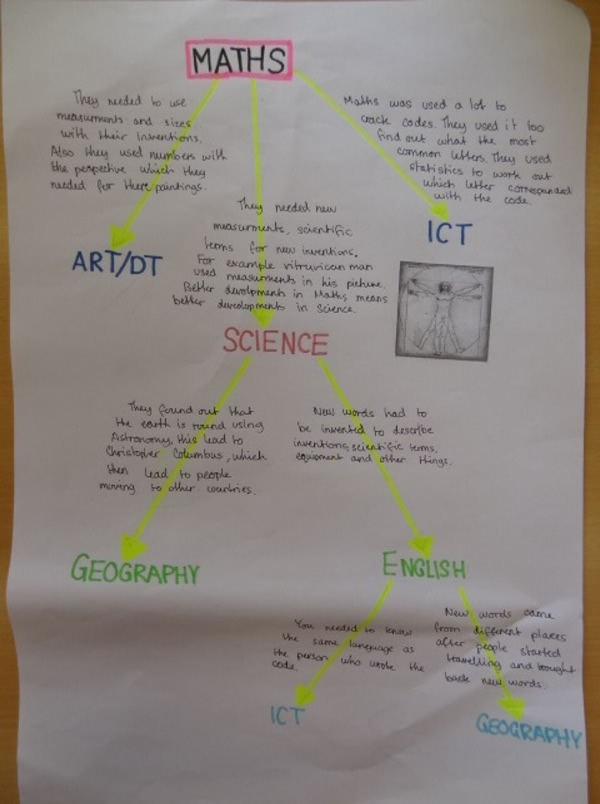 MATHS
They needed to use
measurments and sizes
with their inventions.
Also they used numbers with
the perspective which they
needed for there paintings.
Maths was used a lot to
crack codes. They used it too
find out what the most
common letters. They used
statistics to work out
which letter corresponded
with the code.
ART/DT
They needed new
measurments, scientific
terms for new inventions.
For example vitruvican man
used measurments in his picture.
Better devolpments in Maths means
better developments in science.
ICT
SCIENCE
They found out that
the earth is round using
Astronomy, this lead to
Christopher Columbus, which
then lead to people
moving to other countries.
New words had to
be invented to describe
inventions, scientific terms,
equipment and other things.
GEOGRAPHY
ENGLISH
You needed to know
the same language as
the person who wrote the
code.
New words came
from different places
after people started
travelling and brought
back new words.
ICT
GEOGRAPHY